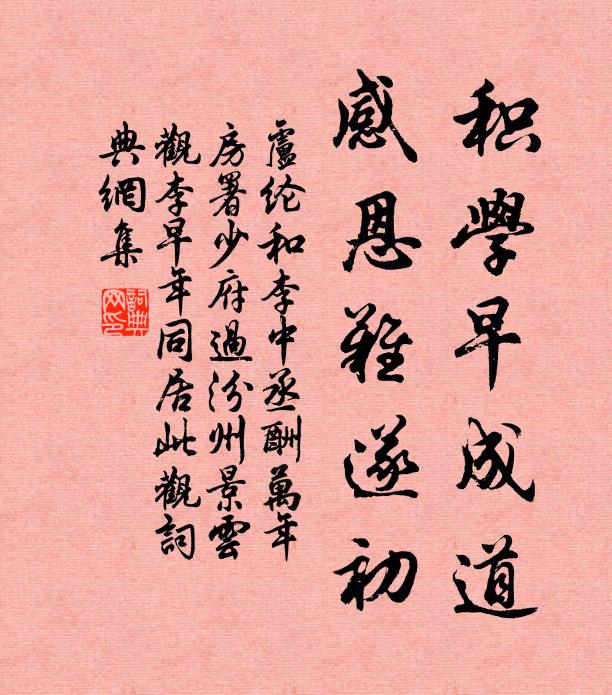 积學早成道
感恩難遂初
盧纶和李中丞酬萬年
房署少府過汾州景雲
觀李早年同居此觀詞
典網集
詞典
网印